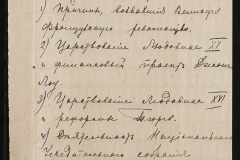 1) Причины, вызвавшія Великую
французскую революцію.
2) Царствованіе Людовика XV
и финансовый проектъ Джона
Лоу.
3) Царствованіе Людовика XVI
и реформы Тюрго.
4) Дѣятельность Національнаго
Учредительнаго собранія